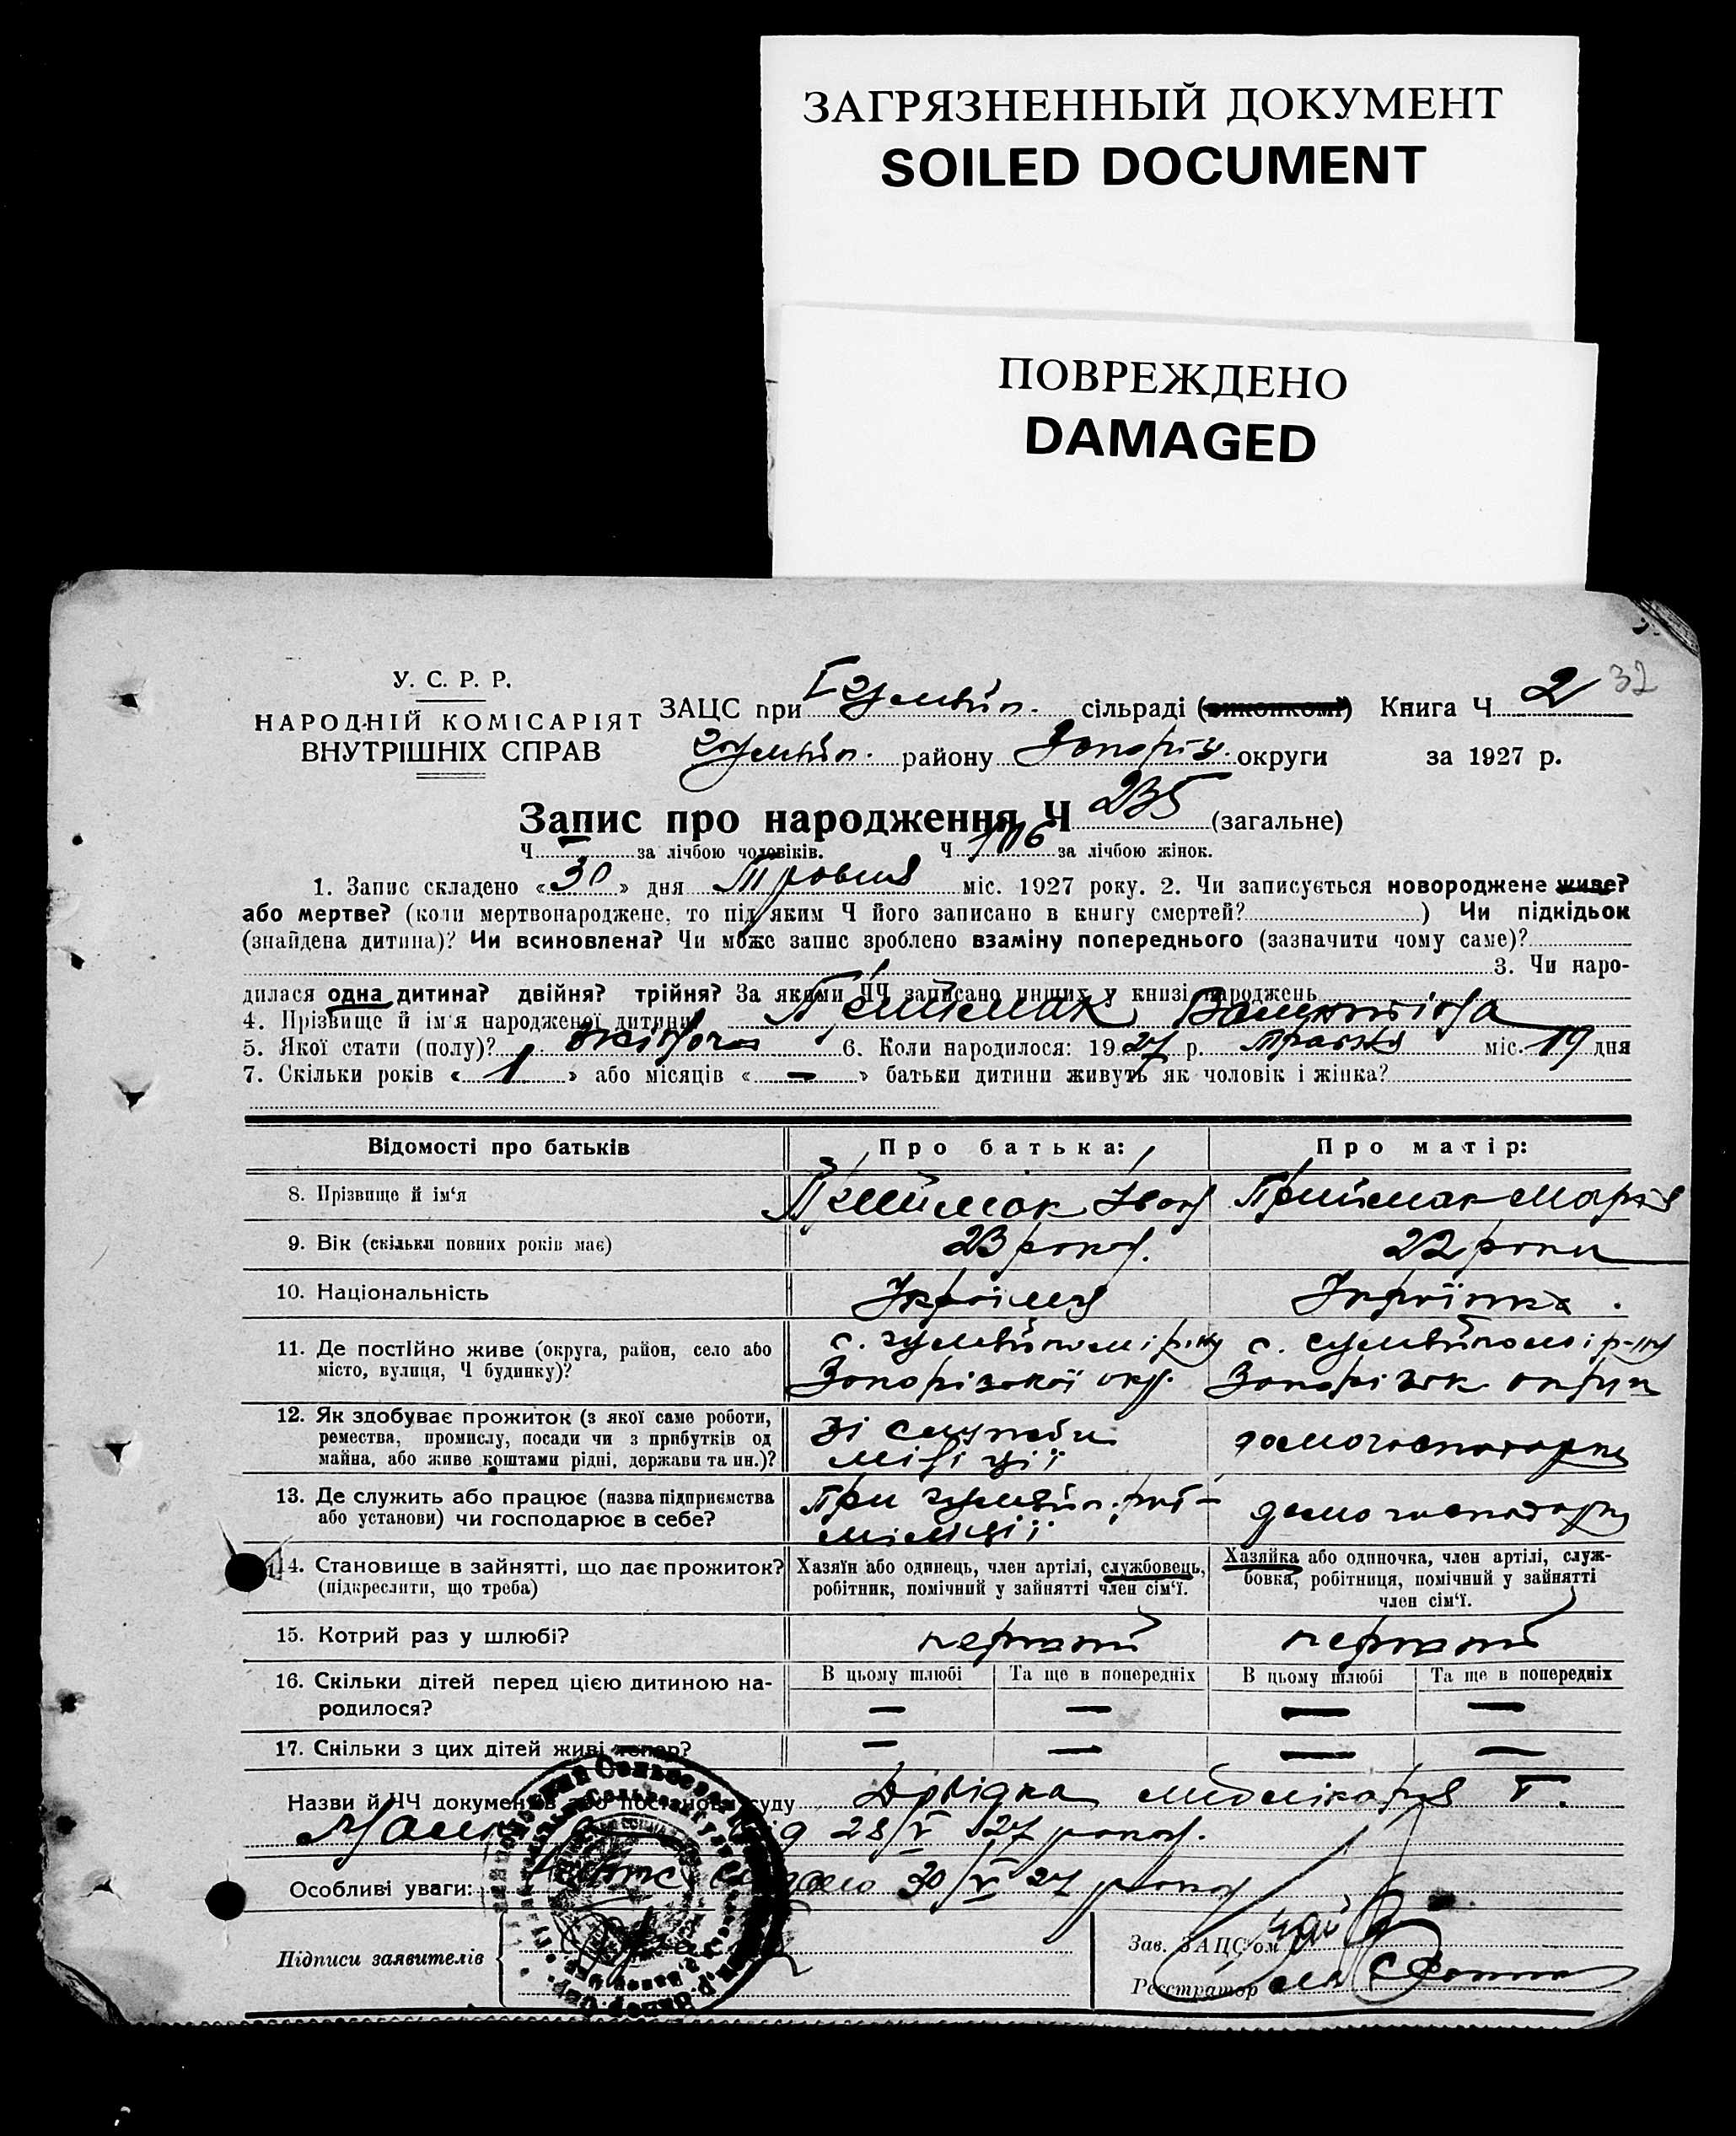 ЗАГРЯЗНЕННЫЙ ДОКУМЕНТ
SOILED DOCUMENT
ПОВРЕЖДЕНО
DAMAGED
32
У. С. Р. Р.
НАРОДНІЙ КОМІСАРІЯТ
ВНУТРІШНІХ СПРАВ
ЗАЦС при Гуляйпіл. сільраді (виконкомі) Книга Ч 2
Гуляйпіл. району Запоріз. округи за 1927 р.
Запис про народження Ч 235 (загальне)
Ч — за лічбою чоловіків. Ч 106 за лічбою жінок.
1. Запис складено «30» дня Травня міс. 1927 року. 2. Чи записується новороджене живе?
або мертве? (коли мертвонароджене, то під яким Ч його записано в книгу смертей? ) Чи підкідьок
(знайдена дитина)? Чи всиновлена? Чи може запис зроблено взаміну попереднього (зазначити чому саме)?
3. Чи наро-
дилася одна дитина? двійня? трійня? За якими ЧЧ записано инших у книзі народжень
4. Прізвище й ім'я народженої дитини Приймак Валентіна
5. Якої стати (полу)? жіноча 6. Коли народилося: 1927 р. травня міс. 19 дня
7. Скільки років «1» або місяців «—» батьки дитини живуть як чоловік і жінка?
Відомості про батьків Про батька: Про матір:
8. Прізвище й ім'я Приймак Іван Приймак Марія
9. Вік (скільки повних років має) 23 роков. 22 роки
10. Національність Україنець Українка.
11. Де постійно живе (округа, район, село або с. Гуляйполе і р-ну с. Гуляйполе і р-ну
місто, вулиця, Ч будинку)? Запорізької окр. Запорізьк округи
12. Як здобуває прожиток (з якої саме роботи, Зі служби
ремества, промислу, посади чи з прибутків од міліції домогосподарка
майна, або живе коштами рідні, держави та ин.)?
13. Де служить або працює (назва підприємства При Гуляйпіл. рай-
або установи) чи господарює в себе? міліції домогосподарка
14. Становище в зайнятті, що дає прожиток? Хазяїн або одинець, член артілі, службовець, Хазяйка або одиночка, член артілі, служ-
(підкреслити, що треба) робітник, помічний у зайнятті член сім'ї. бовка, робітниця, помічний у зайнятті
член сім'ї.
15. Котрий раз у шлюбі? перший перший
16. Скільки дітей перед цією дитиною на- В цьому шлюбі Та ще в попередніх В цьому шлюбі Та ще в попередніх
родилося? — — — —
17. Скільки з цих дітей живі тепер? — — — —
Назви й ЧЧ документів або постанови суду
від 28/V 27 роков.
Особливі уваги: 30/V 27 роков
Підписи заявителів
Зав. ЗАЦС'ом
Реєстратор